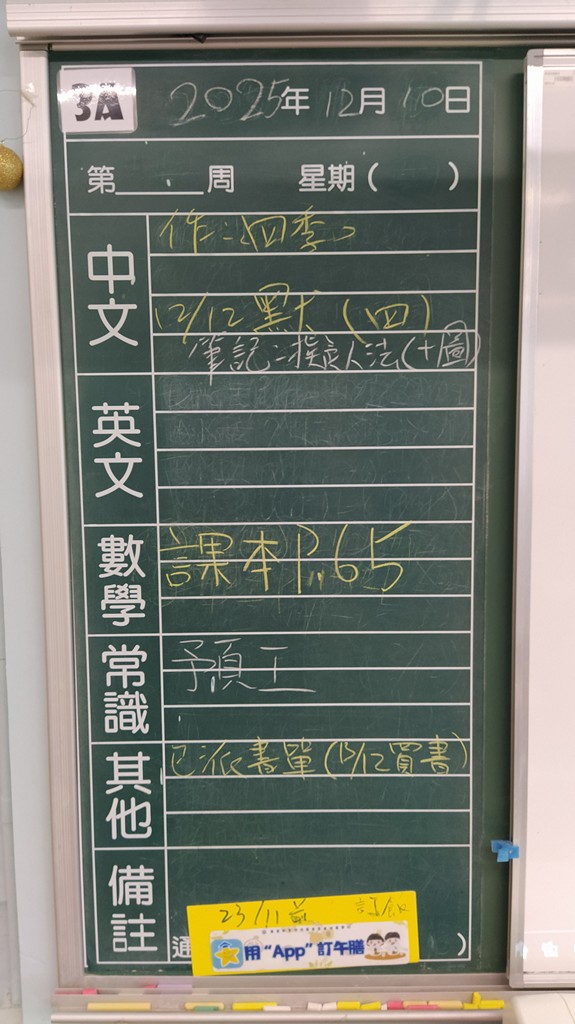 3A
2025年12月10日
第____周 星期( )
中文
作:四季。
12/12 默(四)
筆記:擬人法(+圖)
英文
數學
課本P.65
常識
預工
其他
已派書單(13/12買書)
備註
23/11前
用“App”訂午膳
通
)